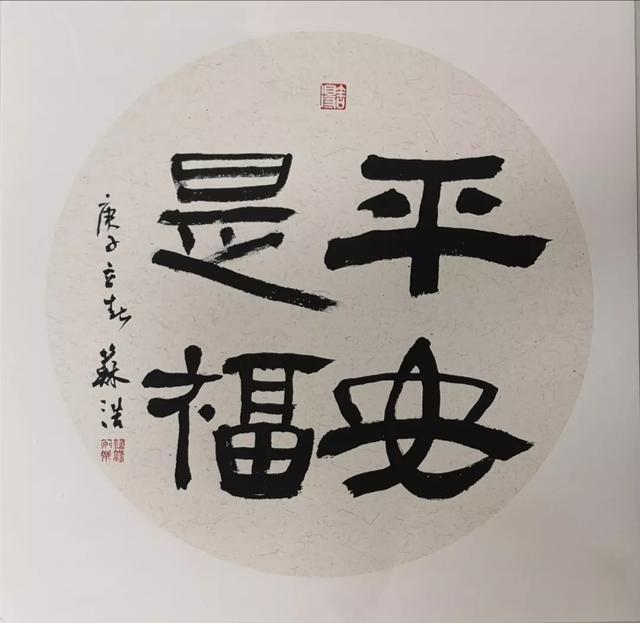 平安
是福
庚子立春 蘇浩